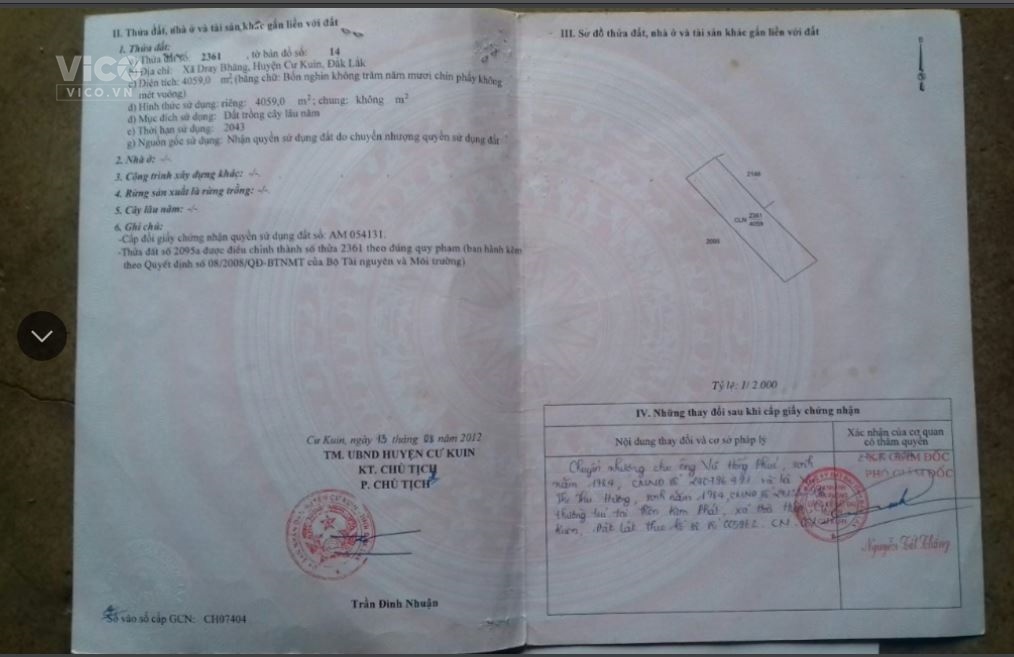 II. Thửa đất, nhà ở và tài sản khác gắn liền với đất
1. Thửa đất:
a) Thửa đất số: 2361, tờ bản đồ số: 14
b) Địa chỉ: Xã Dray Bhăng, Huyện Cư Kuin, Đắk Lắk
c) Diện tích: 4059,0 m², (bằng chữ: Bốn nghìn không trăm năm mươi chín phẩy không
mét vuông)
d) Hình thức sử dụng: riêng: 4059,0 m²; chung: không m²
đ) Mục đích sử dụng: Đất trồng cây lâu năm
e) Thời hạn sử dụng: 2043
g) Nguồn gốc sử dụng: Nhận quyền sử dụng đất do chuyển nhượng quyền sử dụng đất
2. Nhà ở: -/-
3. Công trình xây dựng khác: -/-
4. Rừng sản xuất là rừng trồng: -/-
5. Cây lâu năm: -/-
6. Ghi chú:
-Cấp đổi giấy chứng nhận quyền sử dụng đất số: AM 054131.
-Thửa đất số 2095a được điều chỉnh thành số thửa 2361 theo đúng quy phạm (ban hành kèm
theo Quyết định số 08/2008/QĐ-BTNMT của Bộ Tài nguyên và Môi trường)
Cư Kuin, ngày 15 tháng 08 năm 2012
TM. UBND HUYỆN CƯ KUIN
KT. CHỦ TỊCH
P. CHỦ TỊCH
Trần Đình Nhuận
Số vào sổ cấp GCN: CH07404
III. Sơ đồ thửa đất, nhà ở và tài sản khác gắn liền với đất
2146
CLN 2361
4059
2095
Tỷ lệ: 1/ 2.000
IV. Những thay đổi sau khi cấp giấy chứng nhận
Nội dung thay đổi và cơ sở pháp lý
Xác nhận của cơ quan
có thẩm quyền
Chuyển nhượng cho ông Vũ Hồng Phúc, sinh
năm 1984, CMND số và bà
Thị Thu Hương, sinh năm 1984, CMND số
thường trú tại thôn Kim Phát, xã Hòa Hiệp, Cư
Kuin, Đắk Lắk theo hồ sơ số 005962. CN.
GIÁM ĐỐC
PHÓ GIÁM ĐỐC
Nguyễn Tất Thắng
VICO
VICO.VN